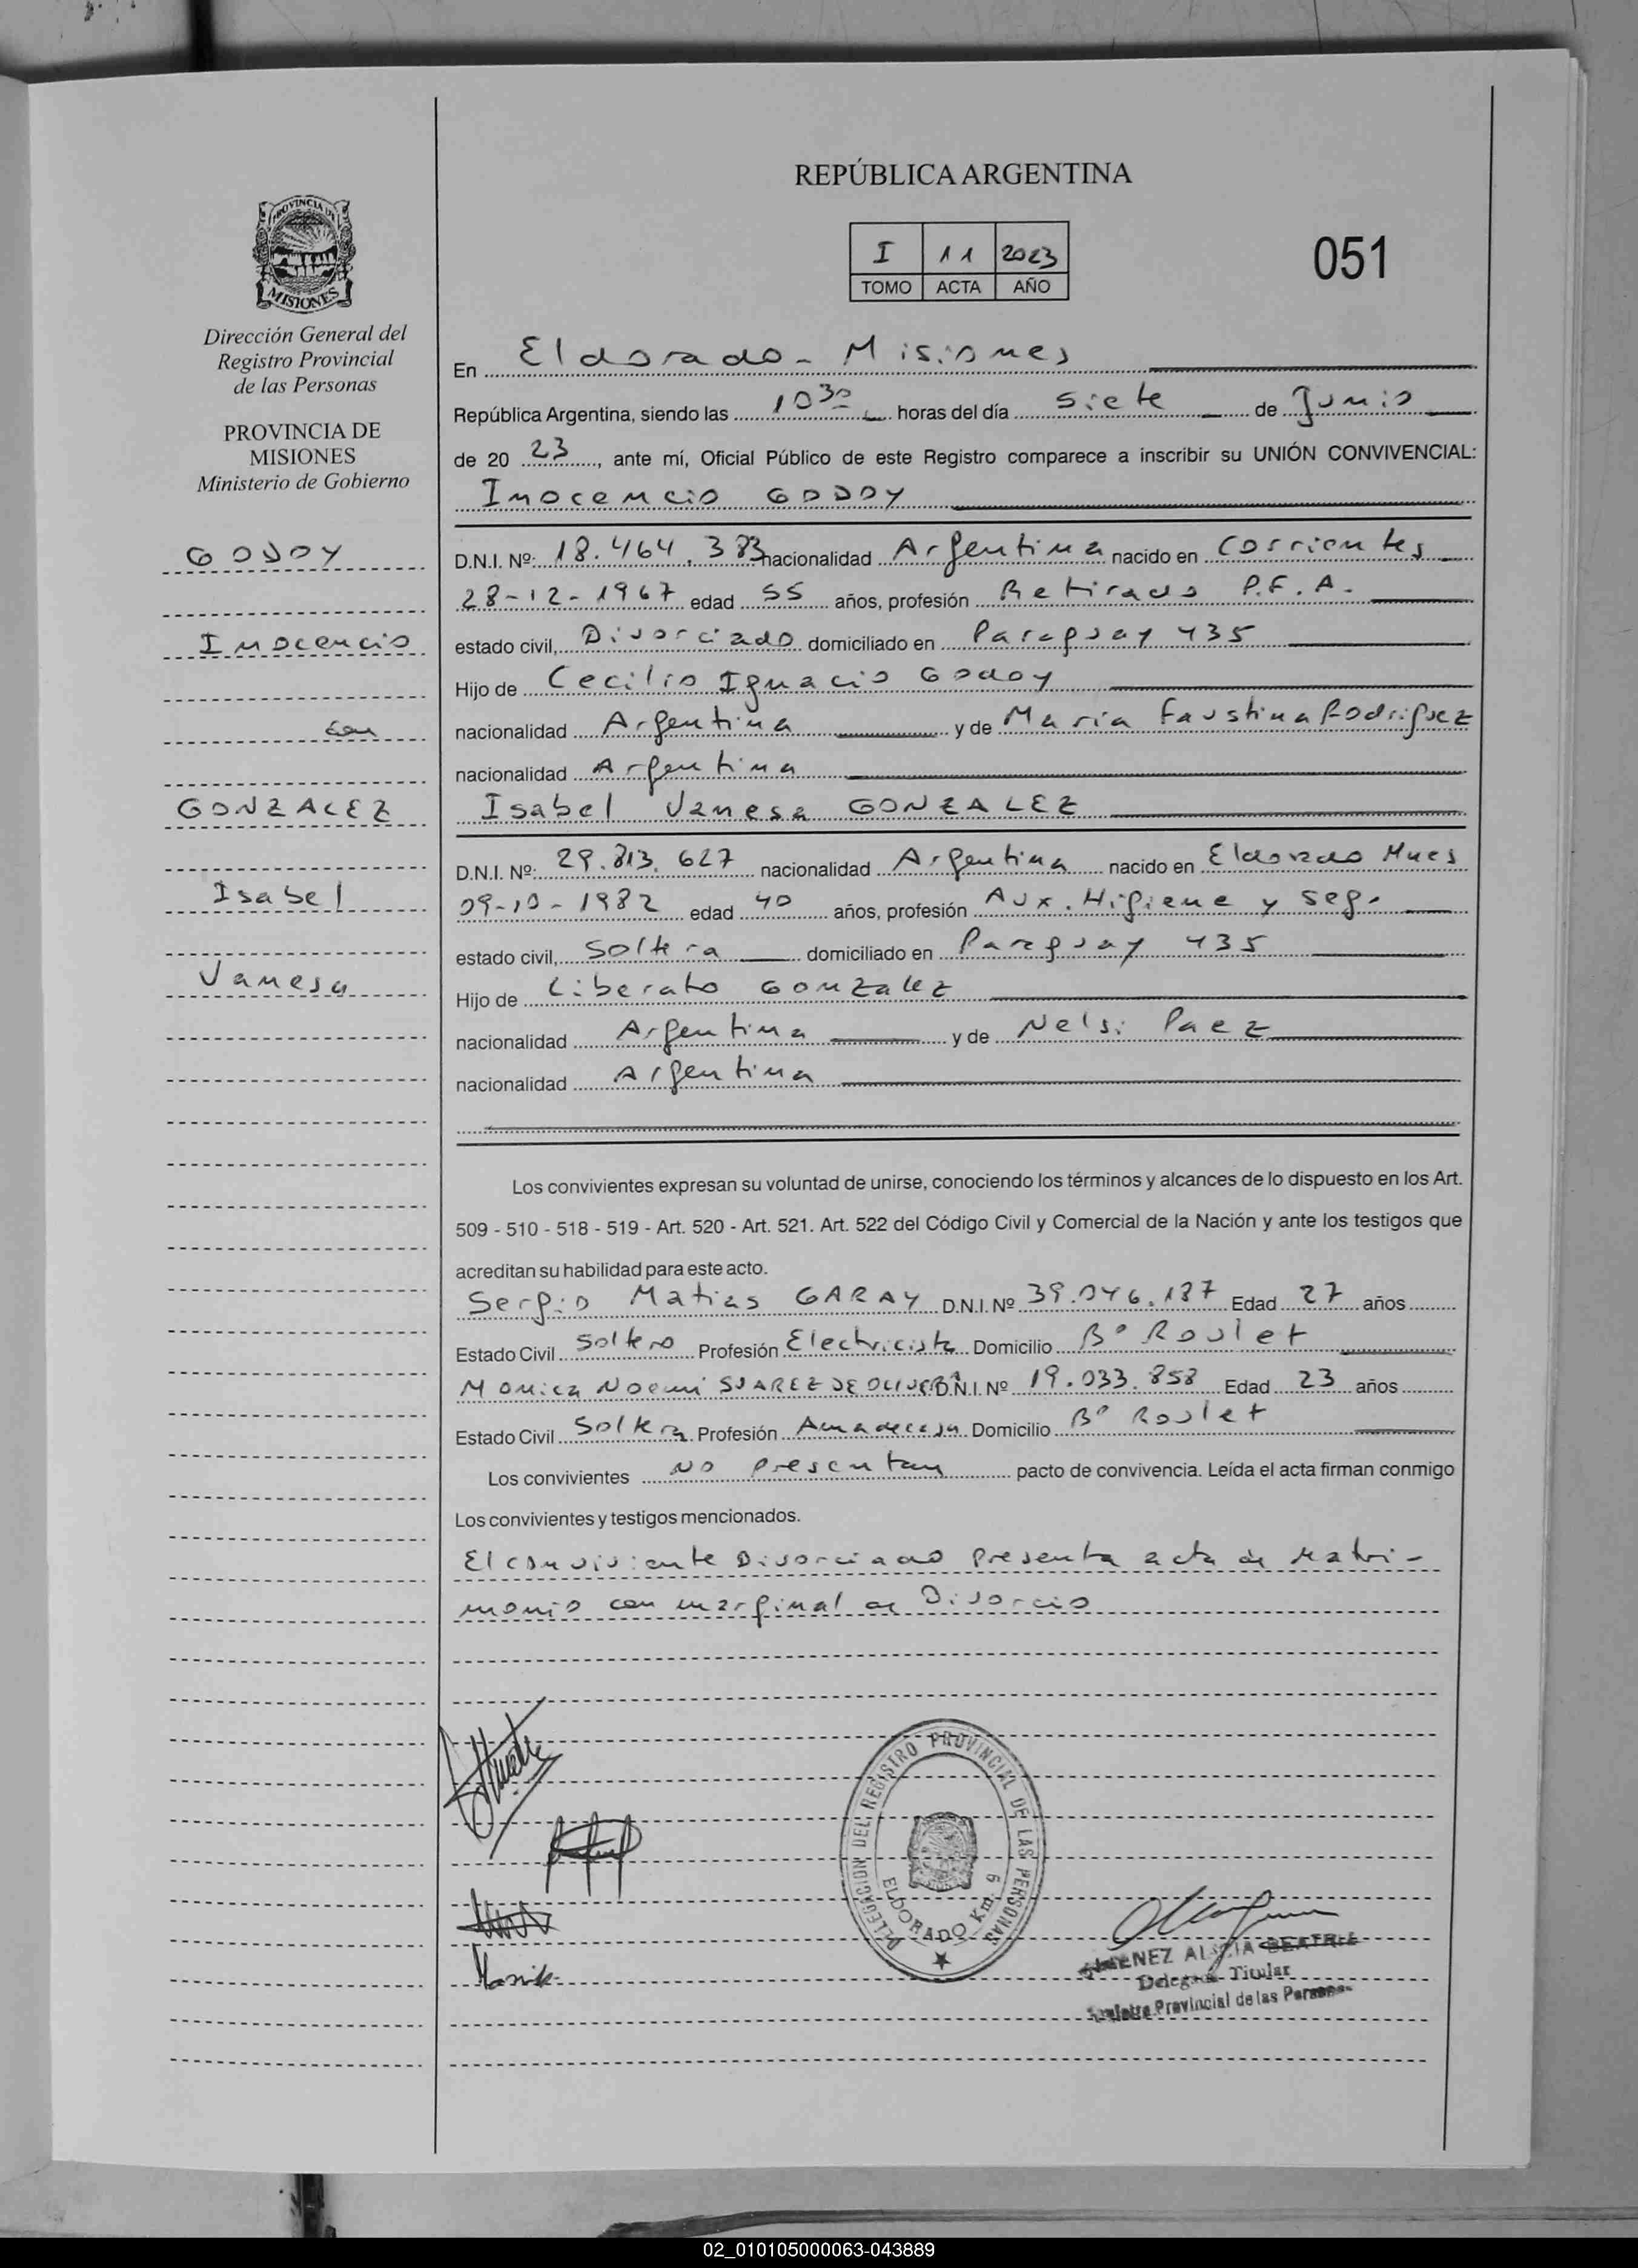 REPÚBLICA ARGENTINA
I 11 2023
TOMO ACTA AÑO
051
PROVINCIA DE
MISIONES
Dirección General del
Registro Provincial
de las Personas
PROVINCIA DE
MISIONES
Ministerio de Gobierno
GODOY
Inocencio
con
GONZALEZ
Isabel
Vanesa
En Eldorado - Misiones
República Argentina, siendo las 10 30 horas del día siete de Junio
de 20 23, ante mí, Oficial Público de este Registro comparece a inscribir su UNIÓN CONVIVENCIAL:
Inocencio GODOY
D.N.I. Nº: 18.464.383 nacionalidad Argentina nacido en Corrientes
28-12-1967 edad 55 años, profesión Retirado P.F.A.
estado civil, Divorciado domiciliado en Paraguay 435
Hijo de Cecilio Ignacio Godoy
nacionalidad Argentina y de María Faustina Rodriguez
nacionalidad Argentina
Isabel Vanesa GONZALEZ
D.N.I. Nº: 29.813.627 nacionalidad Argentina nacido en Eldorado Mnes
09-10-1982 edad 40 años, profesión Aux. Higiene y seg.
estado civil, Soltera domiciliado en Paraguay 435
Hijo de Liberato Gonzalez
nacionalidad Argentina y de Nelsi Paez
nacionalidad Argentina
Los convivientes expresan su voluntad de unirse, conociendo los términos y alcances de lo dispuesto en los Art.
509 - 510 - 518 - 519 - Art. 520 - Art. 521. Art. 522 del Código Civil y Comercial de la Nación y ante los testigos que
acreditan su habilidad para este acto.
Sergio Matias GARAY D.N.I. Nº 39.046.187 Edad 27 años
Estado Civil Soltero Profesión Electricista Domicilio Bº Roulet
Monica Noemi SUAREZ DE OLIVERA D.N.I. Nº 19.033.858 Edad 23 años
Estado Civil Soltera Profesión Ama de casa Domicilio Bº Roulet
Los convivientes No presentan pacto de convivencia. Leída el acta firman conmigo
Los convivientes y testigos mencionados.
El conviviente Divorciado presenta acta de Matri-
monio con marginal de Divorcio
DELEGACION DEL REGISTRO PROVINCIAL DE LAS PERSONAS
ELDORADO Km. 9
ALICIA BEATRIZ
Delegada Titular
Provincial de las Personas
02_010105000063-043889